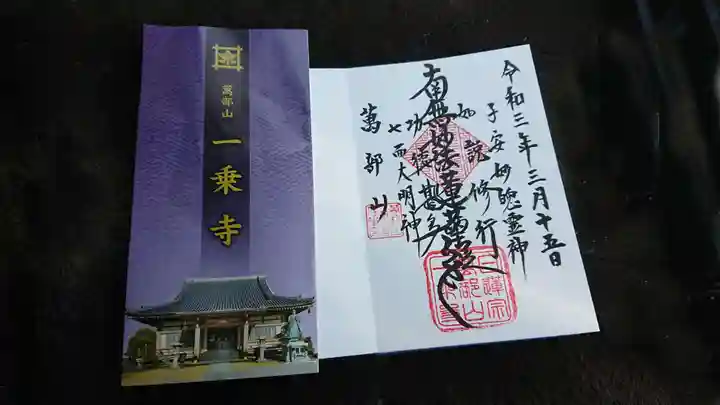 萬部山
一乗寺
令和三年三月十五日
子安妙魄霊神
如説修行
南無妙法蓮華経
功徳甚多
七面大明神
萬部山
日蓮宗
萬部山